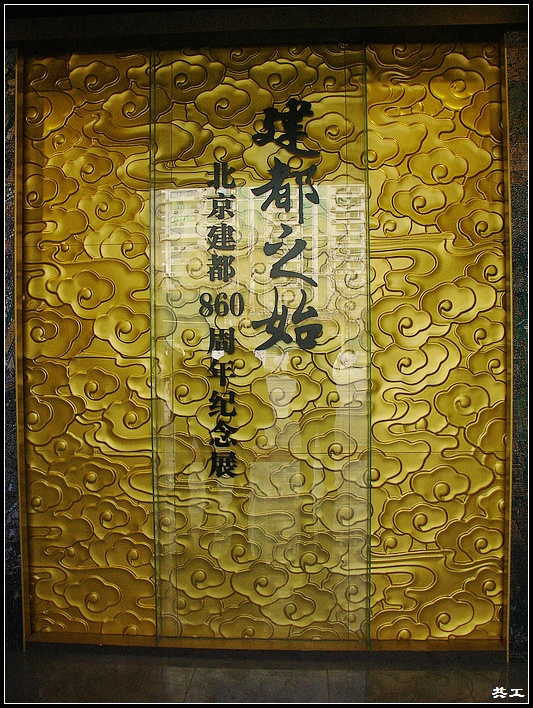 建都之始
北京建都860周年纪念展
共工